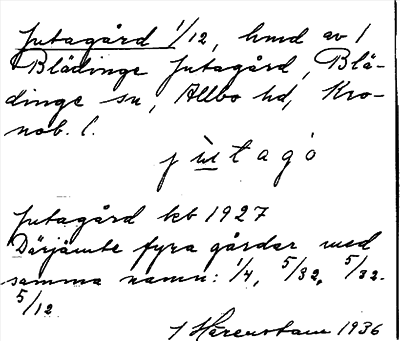 Jutagård 1/12, hmd av 1
Blädinge Jutagård, Blä-
dinge sn, Allbo hd, Kro-
nob. l.
j ùtagó
Jutagård kb 1927
Därjämte fyra gårdar med
samma namn: 1/4, 5/32, 5/32.
5/12
Härenstam 1936